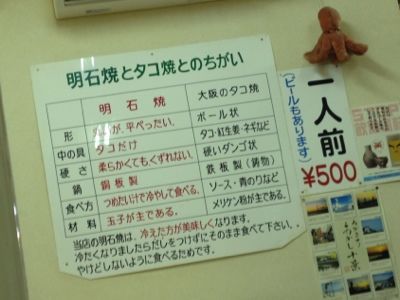 明石焼とタコ焼とのちがい
明石焼 大阪のタコ焼
形 が、平べったい。 ボール状
中の具 タコだけ タコ・紅生姜・ネギなど
硬さ 柔らかくてもくずれない。 硬いダンゴ状
鍋 銅板製 鉄板製(鋳物)
食べ方 つめたいけで冷やして食べる。 ソース・青のりなど
材料 玉子が主である。 メリケン粉が主である。
当店の明石焼は、冷えた方が美味しくなります。
冷たくなりましたらだしをつけずにそのまま食べて下さい。
やけどしないように食べるためです。
一人前
(ビールもあります)
¥500